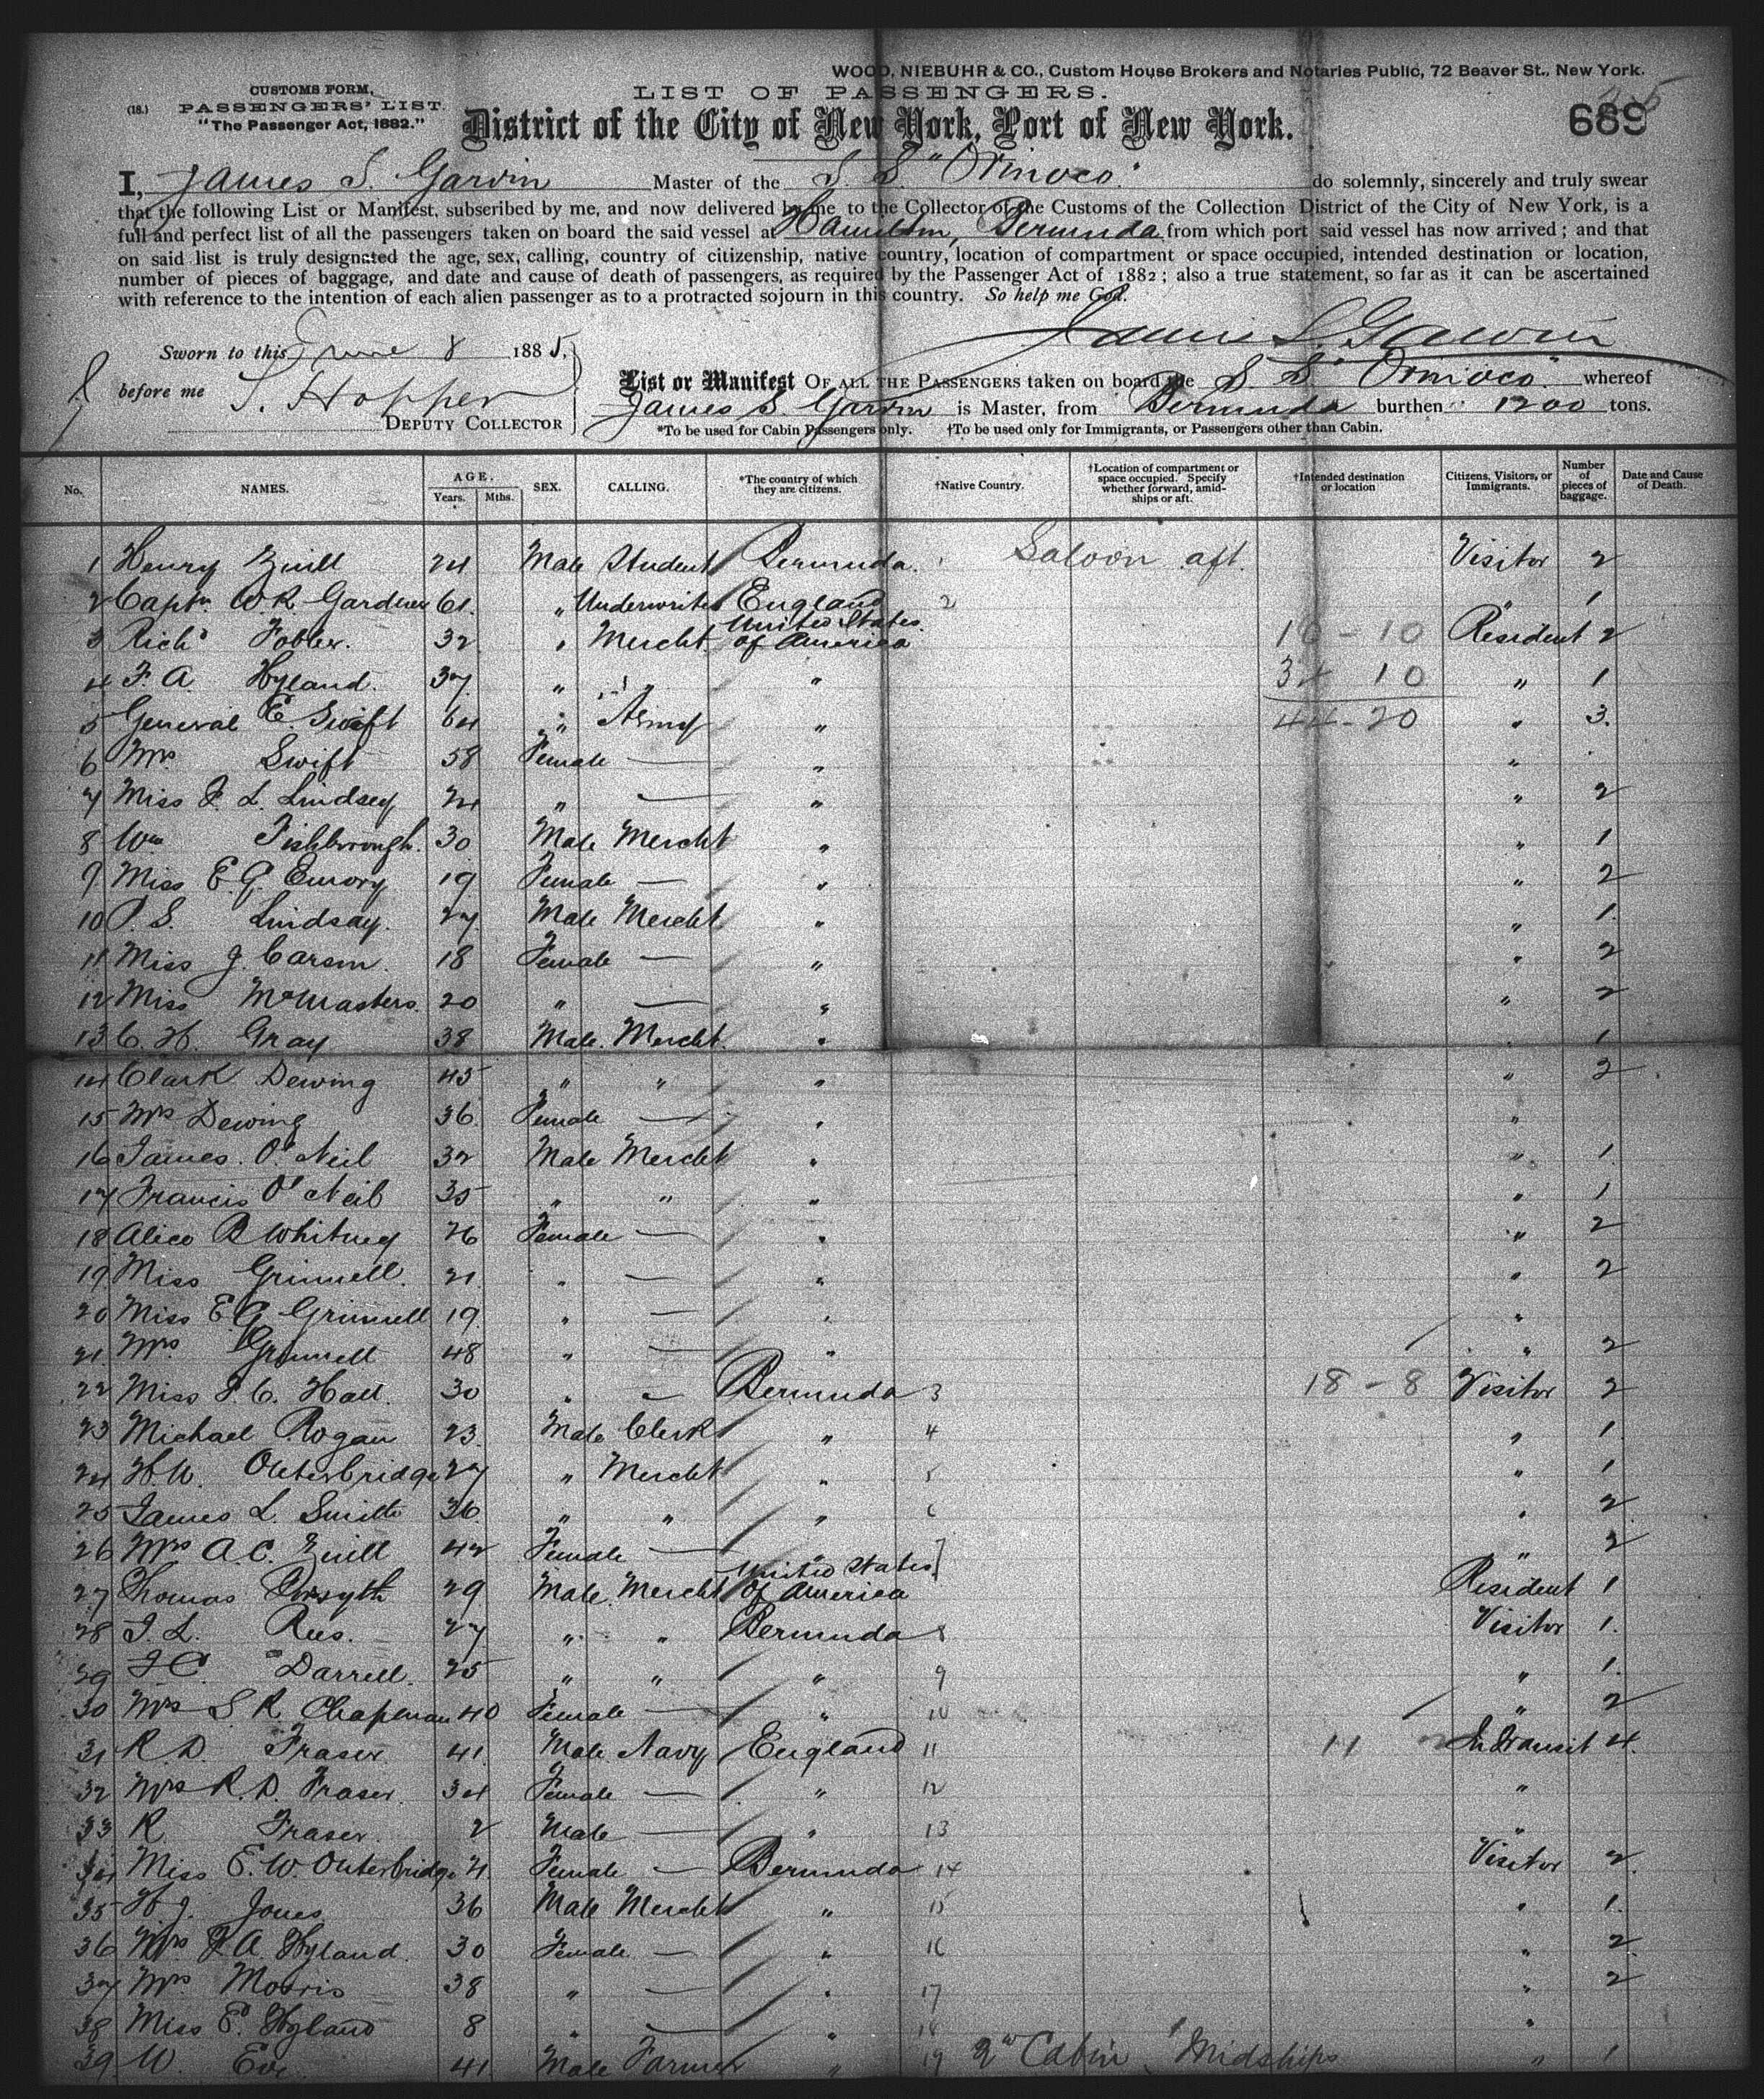 WOOD, NIEBUHR & CO., Custom House Brokers and Notaries Public, 72 Beaver St., New York.
CUSTOMS FORM,
LIST OF PASSENGERS.
(18.) PASSENGERS' LIST.
"The Passenger Act, 1882."
District of the City of New York, Port of New York.
689
I, James S. Garvin Master of the S. S. "Orinoco" do solemnly, sincerely and truly swear
that the following List or Manifest, subscribed by me, and now delivered by me to the Collector of the Customs of the Collection District of the City of New York, is a
full and perfect list of all the passengers taken on board the said vessel at Hamilton, Bermuda from which port said vessel has now arrived; and that
on said list is truly designated the age, sex, calling, country of citizenship, native country, location of compartment or space occupied, intended destination or location,
number of pieces of baggage, and date and cause of death of passengers, as required by the Passenger Act of 1882; also a true statement, so far as it can be ascertained
with reference to the intention of each alien passenger as to a protracted sojourn in this country. So help me God.
James S. Garvin
Sworn to this June 8 1885.
before me S. Hopper
DEPUTY COLLECTOR
List or Manifest OF ALL THE PASSENGERS taken on board the S. S. "Orinoco" whereof
James S. Garvin is Master, from Bermuda burthen 1200 tons.
*To be used for Cabin Passengers only. †To be used only for Immigrants, or Passengers other than Cabin.
No. NAMES. AGE. Years. Mths. SEX. CALLING. *The country of which they are citizens. †Native Country. †Location of compartment or space occupied. Specify whether forward, amidships or aft. †Intended destination or location Citizens, Visitors, or Immigrants. Number of pieces of baggage. Date and Cause of Death.
1 Henry Zuill 24 Male Student Bermuda. 1 Saloon aft. Visitor 2
2 Captn W R Gardner 61. " Underwriter England 2 " 1
3 Richd Fobler. 32 " Mercht United States of America 10 - 10 Resident 2
4 F. A. Hyland. 37. " " " 34 10 " 1
5 General E. Swift 64 " Army " 44-20 " 3.
6 Mrs Swift 58 Female — " "
7 Miss F. L. Lindsey 24 " — " " 2
8 Wm Fishborough. 30 Male Mercht " " 1
9 Miss E. G. Emory 19 Female — " " 2
10 P. S. Lindsay. 27. Male Mercht " " 1.
11 Miss J. Carson. 18 Female — " " 2
12 Miss McMasters. 20 " — " " 2
13 C. H. Gray 38 Male. Mercht. " " 1
14 Clark Dewing 45 " " " " 2
15 Mrs Dewing 36. Female — " "
16 James. O' Neil 32 Male Mercht " " 1.
17 Francis O' Neil 35 " " " " 1
18 Alice B Whitney 26 Female — " " 2
19 Miss Grinnell. 21. " — " " 2
20 Miss E G Grinnell 19. " — " "
21. Mrs Grinnell 48 " — " " 2
22 Miss F. C. Hall. 30 " — Bermuda 3 18 - 8 Visitor 2
23 Michael Rogan 23. Male Clerk " 4 " 1.
24 H. W. Outerbridge 27 " Mercht " 5 " 1.
25 James L. Smith 36 " " " 6 " 2
26 Mrs A. C. Zuill 42 Female — " 7 " 2
27 Thomas Forsyth 29 Male. Mercht United States of America Resident 1
28 J. L. Rees. 27 " " Bermuda 8 Visitor 1.
29 J C Darrell. 25 " " " 9 " 1.
30 Mrs S R Chapman 40 Female — " 10 " 2
31 R D. Fraser 41. Male Navy England 11 11 In transit 4.
32 Mrs R. D. Fraser. 34 Female — " 12 "
33 R Fraser. 2 Male — " 13 "
34 Miss E. W. Outerbridge 21 Female — Bermuda 14 Visitor 2.
35 H J. Jones 36 Male Mercht " 15 " 1.
36 Mrs F. A. Hyland. 30 Female — " 16 " 2.
37 Mrs Morris 38 " — " 17 " 2
38 Miss E. Hyland 8 " — " 18 "
39. W. Eve. 41. Male Farmer " 19 2nd Cabin Midships " 1